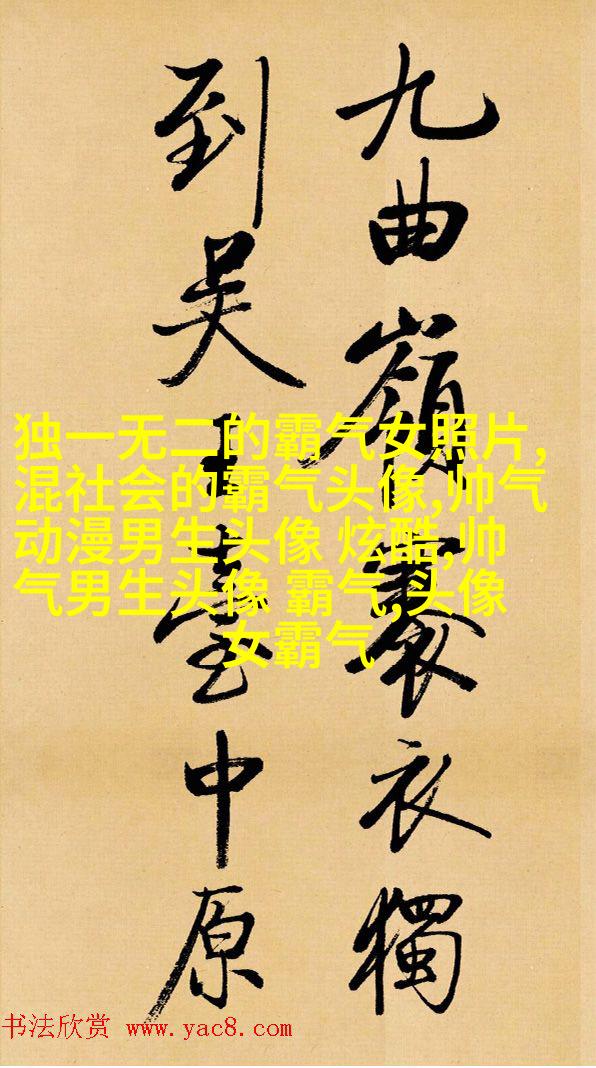 九曲嶺褰衣獨
到吳王臺中原
独一无二的霸气女照片,
混社会的霸气头像,帅气
动漫男生头像 炫酷,帅
气男生头像 霸气,头像
女霸气
书法欣赏 www.yac8.com